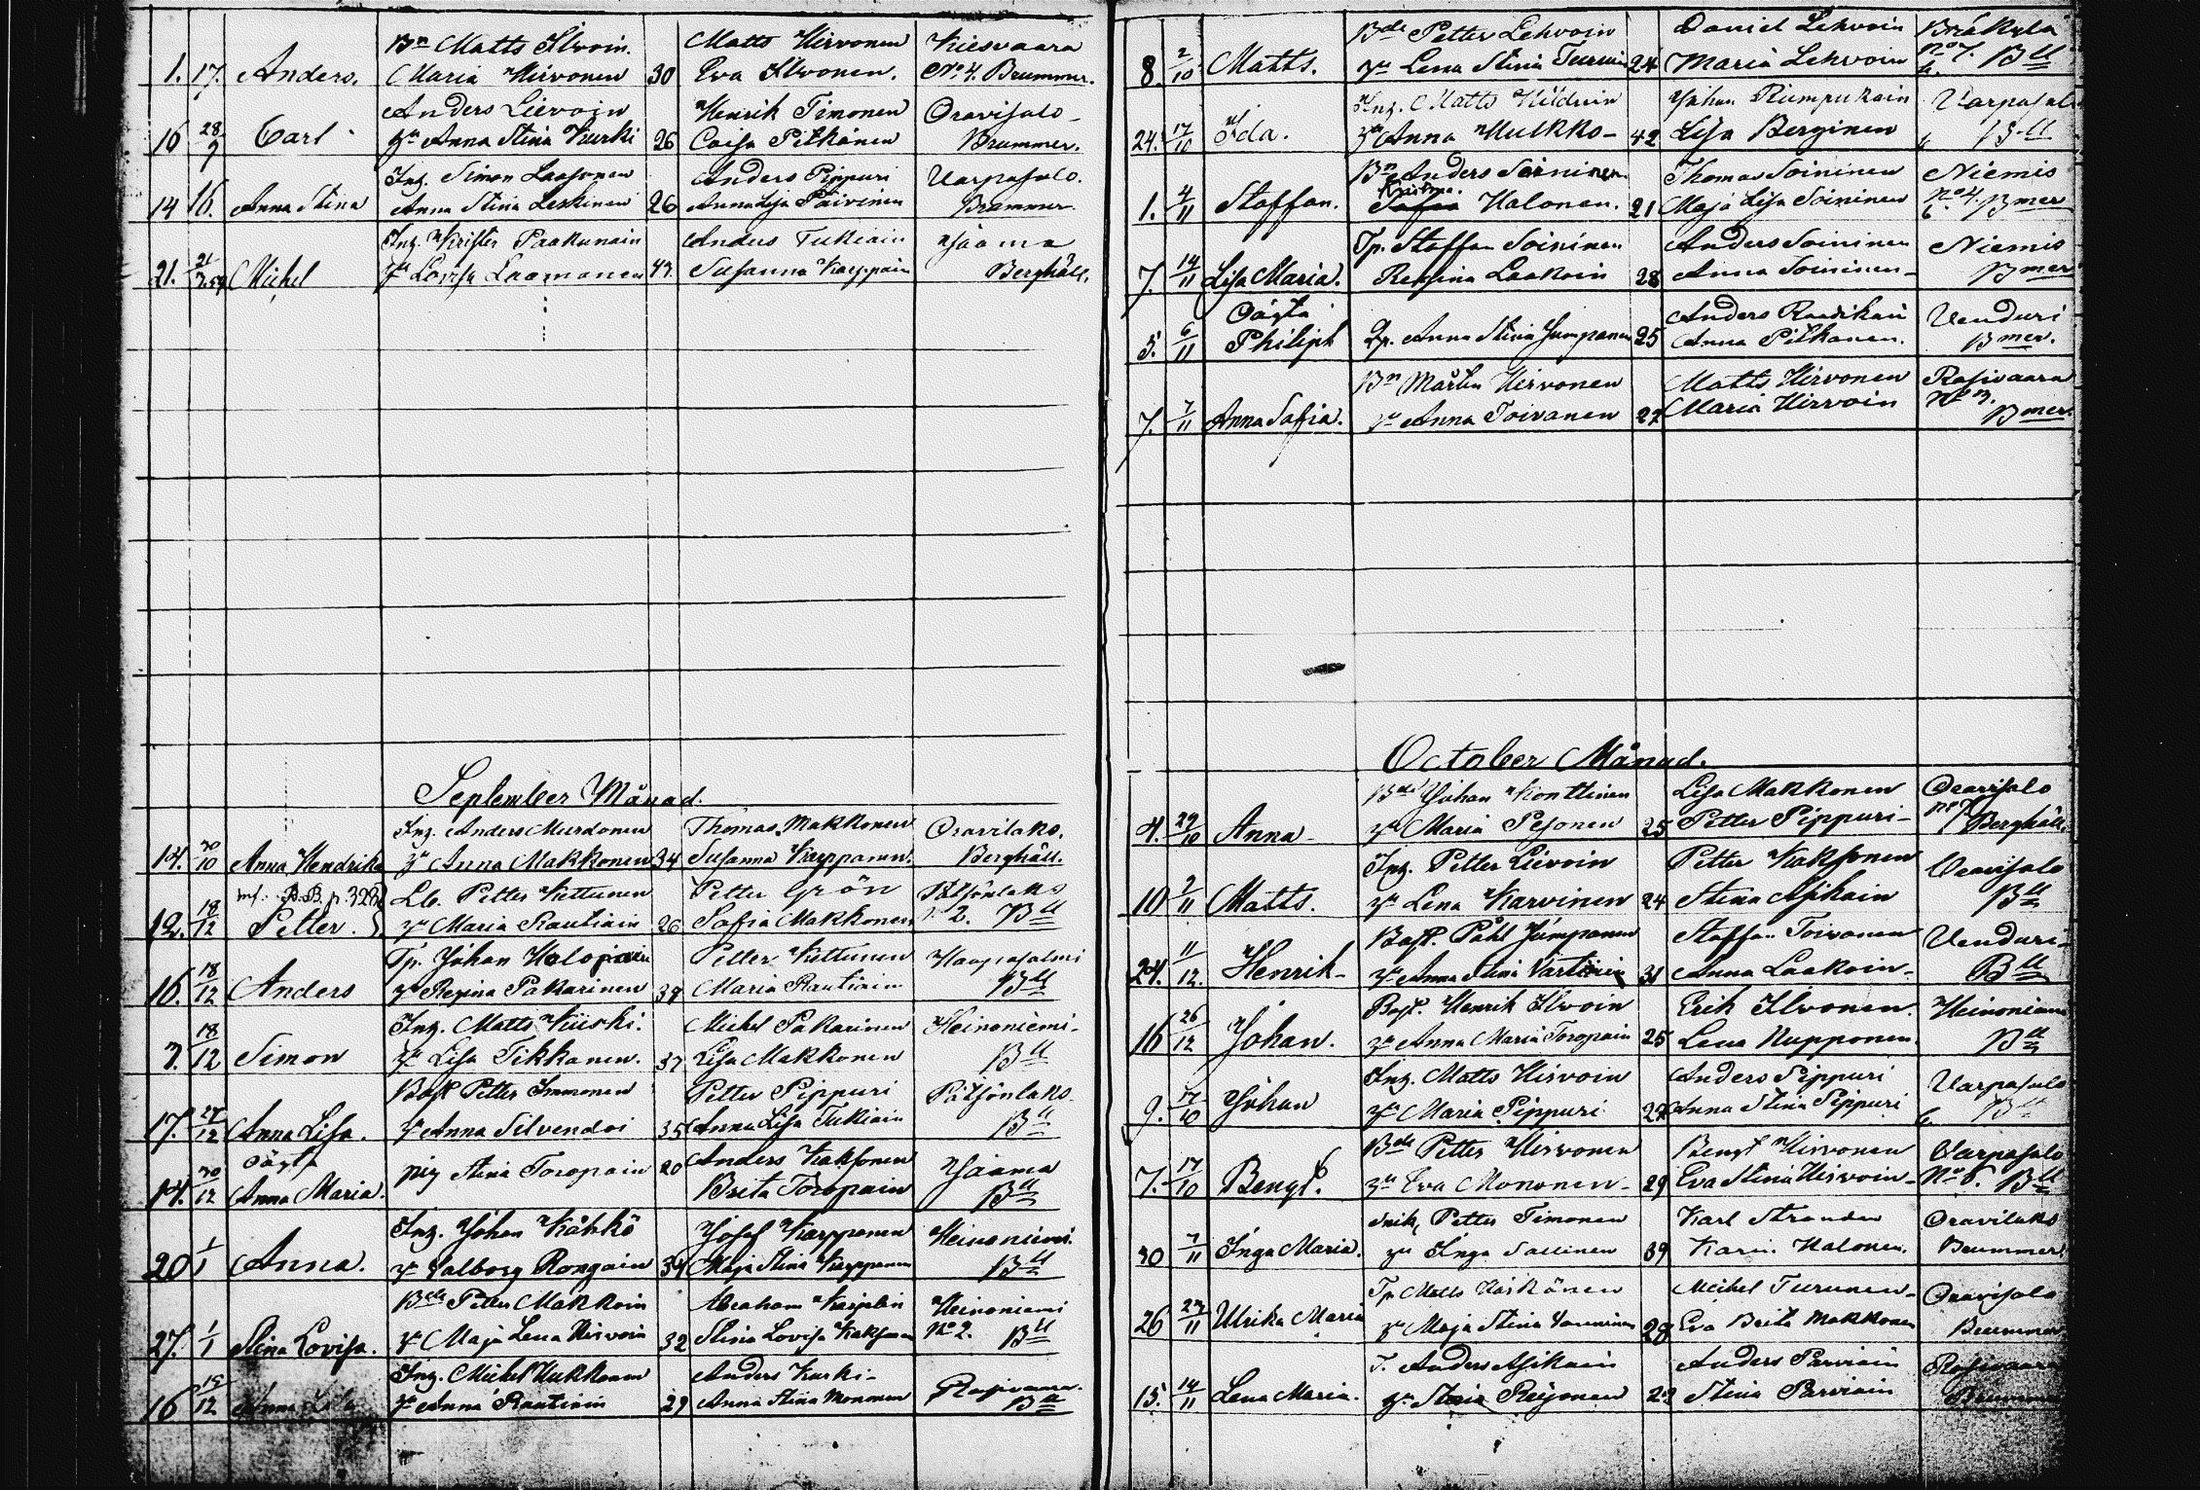 Bn Matts Ilvoin. Matts Hirvonen Kiesvaara
1. 17. Anders. Maria Hirvonen 30 Eva Ilvonen. No. 4. Brummer.
Anders Lievoin Henrik Timonen Oravisalo
16 28/9 Carl Anna Stina Kurki 26 Caisa Pitkänen Brummer.
Ing. Simon Laasonen Anders Pippuri Varpasalo.
14 16. Anna Stina Anna Stina Leskinen 26 Anna Lisa Päivinen Brummer.
Ing. Krister Paakunain Anders Tukiain Jaama
21. Michel Lovisa Laamanen 47. Susanna Karppain Berghäll.
September Månad.
Ing. Anders Murdonen Thomas Makkonen Oravilaks.
14. 30/10 Anna Hendrika Anna Makkonen 34 Susanna Karppanen. Berghäll.
B.B. p. 328 Lb. Petter Kettunen Petter Grön Pötsönlaks
12. 18/12 Petter. Maria Rautiain 26 Sofia Makkonen 2. Bll
Tp. Johan Holopain Petter Kettunen Haapasalmi
16. 18/12 Anders Regina Pakarinen 37 Maria Rautiain Bll
Ing. Matts Kiiski. Michel Pakarinen Heinoniemi
7. 18/12 Simon Lisa Tikkanen. 37 Lisa Makkonen Bll
Bost Petter Immonen Petter Pippuri Pötsönlaks
17. 27/12 Anna Lisa. Anna Silvendoi 35 Anna Lisa Tukiain Bll
Oägta pig Stina Toropain 20 Anders Kaksonen Jaama
14. 30/12 Anna Maria. Brita Toropain Bll
Ing. Johan Kähkö Josef Karppanen Heinoniemi.
20 1/1 Anna. Valborg Rongain 34 Maja Stina Karppanen Bll
Bde Petter Makkoin Abraham Heinoniemi
27. 1/1 Stina Lovisa. Maja Lena Hirvoin 32 Stina Lovisa No 2. Bll
Ing. Michel Anders Kurki
16 15/12 Anna Anna Rautiain 29 Anna Stina Mononen Rasivaara. Bll
Bde Petter Lehvoin Daniel Lehvoin Bråkylä
8. 2/10 Matts. Lena Stina Turuin 24 Maria Lehvoin No 7. Bll
Ing. Matts Johan Rumpukain Varpasalo
24. 17/10 Ida. Anna Mulkko 42 Lisa Berginen Bll
Bn Anders Soininen Thomas Soininen Niemis
1. 4/11 Staffan. Halonen. 21 Maja Lisa Soininen No 4. Bmer
Tp. Staffan Soininen Anders Soininen Niemis
7. 14/11 Lisa Maria. Regina Laakoin 28 Anna Soininen Bmer
Oägta Anders Raudikain Venduri
5. 6/11 Philiph Anna Stina Jumpanen 25 Anna Pitkanen. Bmer.
Bn Mårten Hirvonen Matts Hirvonen Rasivaara
7. 7/11 Anna Sofia. Anna Toivanen 27 Maria Hirvoin Bmer.
October Månad.
Bde Johan Konttinen Lisa Makkonen Oravisalo
4. 29/10 Anna Maria Pesonen 25 Petter Pippuri Berghäll.
Ing. Petter Lievoin Petter Kaksonen Oravisalo
10 9/11 Matts. Lena Karvinen 24 Stina Asikain Bll
Bost. Påhl Jumpanen Staffan Toivonen Venduri
24. 11/12. Henrik Anna Stina Vartiain 31 Anna Laakoin Bll
Bost. Henrik Ilvoin Erik Ilvonen. Heinoniemi
16 26/12 Johan. Anna Maria Toropain 25 Lena Nupponen. Bll
Ing. Matts Hirvoin Anders Pippuri Varpasalo
9. 17/10 Johan Maria Pippuri 27 Anna Stina Pippuri Bll
Bde Petter Hirvonen Bengt Hirvonen Varpasalo
7. 17/10 Bengt. Eva Mononen 29 Eva Stina Hirvoin No 6. Bll
Petter Timonen Karl Strander Oravilaks
30 7/11 Inga Maria. Inga Sallinen 39 Karin Halonen. Brummer.
Tp Matts Michel Turunen Oravisalo
26 27/11 Ulrika Maria Maja Stina 28 Eva Brita Makkonen Brummer
T. Anders Asikain Anders Parviain Rasivaara
15. 14/11 Lena Maria. Stina Reijonen 22 Stina Parviain Brummer